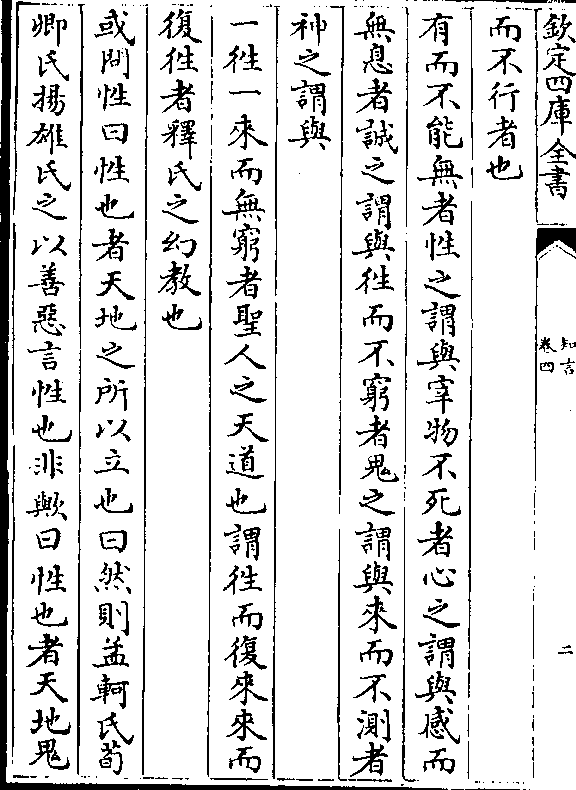 欽定四庫全書
知言
卷四
二
而不行者也
有而不能無者性之謂與宰物不死者心之謂與感而
無息者誠之謂與徃而不窮者鬼之謂與來而不測者
神之謂與
一徃一來而無窮者聖人之天道也謂徃而復來來而
復徃者釋氏之幻教也
或問性曰性也者天地之所以立也曰然則孟軻氏荀
卿氏揚雄氏之以善惡言性也非歟曰性也者天地鬼